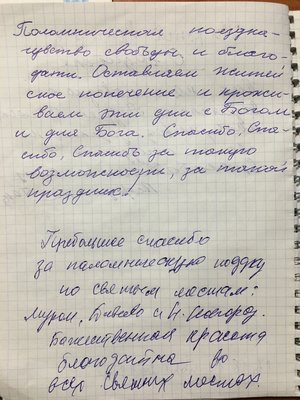 Паломническая поездка-
чувство свободы и благо-
дати. Оставляем житей
ское попечение и прожи-
ваем эти дни с Богом
и для Бога. Спасибо, Спа-
сибо, Спасибо за такую
возможность, за такой
праздник!
Пребольшое спасибо
за паломническую поездку
по святым местам:
Муром, Дивеево и Н. Новгород.
Божественная красота
благодатна во
всех святых местах.